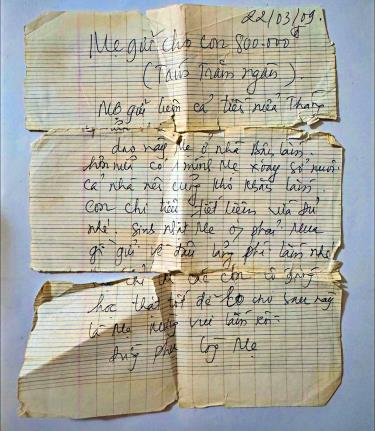 22/03/09.
Mẹ gửi cho con 800.000đ
(Tám Trăm ngàn).
Mẹ gửi luôn cả tiền nửa Tháng
dạo này Mẹ ở nhà bận lắm.
hơn nữa có 1 mình Mẹ xoay sở nuôi
cả nhà nên cũng khó khăn lắm.
con chi tiêu tiết kiệm vừa đủ
nhé. Sinh nhật Mẹ 0 phải mua
gì gửi về đâu lãng phí lắm nhé
chỉ các con cố gắng
học thật tốt để lo cho sau này
là Mẹ mừng vui lắm rồi.
đừng phụ lòng Mẹ